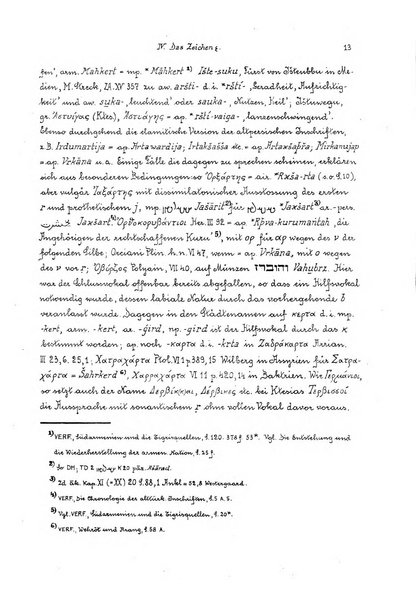 IV. Das Zeichen ξ. 13
gen', arm. Mahkert = mp. * Māhkert ¹⁾ Ište-suku, Fürst von Ištenbbu in Me-
dien, M. Streck, ZA. XV 357 zu aw. aršti- d. i. *rští-, Geradheit, Aufrichtig-
keit' und aw. suka-, leuchtend' oder sauka-, Nutzen, Heil'; Ištuwegu,
gr. Ἀστυίγας (Ktes), Ἀστυάγης = ap. *rští-vaiga-, lanzenschwingend'.
Ebenso durchgehend die elamitische Version der altpersischen Inschriften,
z.B. Irdumartija = ap. Hrtawardija; Irtakšašša etc. = ap. Hrtaxšaþra;
= ap. Vrkāna u.a. Einige Fälle die dagegen zu sprechen scheinen, erklären
sich aus besonderen Bedingungen: so Ὀρξάρτης = air. *Rxša-rta (s.o. § 10),
aber vulgär Ἰαξάρτης mit dissimilatorischer Ausstossung des ersten
r und prothetischem j, mp. Jašārit ²⁾ für *Jaxšart ³⁾ ar.-pers.
Jaxšart. ⁴⁾ Ὀρθοκορυβάντιοι Her. III 92 = ap. *Rþva-kurumantah, die
Angehörigen der rechtschaffenen Kuru' ⁵⁾, mit ορ für αρ wegen des υ der
folgenden Silbe; Orciani Plin. h.n. VI 47, wenn = ap. Vrkāna, mit o wegen
des v vor r; Ὀβόρζος Polyain, VII 40, auf Münzen והוברז Vahubrz. Hier
war der Schlussvokal offenbar bereits abgefallen, so dass ein Hilfsvokal
notwendig wurde, dessen labiale Natur durch das vorhergehende b
veranlasst wurde. Dagegen in den Städtenamen auf κερτα d. i. mp.
-kert, arm. -kert, ar. -gird, np. -gird ist der Hilfsvokal durch das k
bestimmt worden; ap. noch -καρτα d. i. -krta in Ζαδράκαρτα Arrian.
III 23,6. 25,1; Χατραχάρτα Ptol. VI 1 p. 389,15 Wilberg in Assyrien für Σατρα-
χάρτα = Šahrkerd ⁶⁾, Χαρραχάρτα VI 11 p. 420,14 in Baktrien. Wie Γερμάνιοι,
so setzt auch der Name Δερβίκκαι, Δέρβικες etc. bei Ktesias Τερβισσοί
die Aussprache mit sonantischem r ohne vollen Vokal davor voraus.
¹⁾ VERF., Südarmenien und die Tigrisquellen, S. 120. 378 f. 53*. Vgl. Die Entstehung und
die Wiederherstellung der armen. Nation, S. 25 f.
²⁾ So DH; TD 2 K 20 pāz.
³⁾ Id. Stk. Kap. XI (= XX) 20 S. 88,1 Ankl = 52,8 Westergaard.
⁴⁾ VERF., Die Chronologie der alttürk. Inschriften, S. 5 A. 5.
⁵⁾ Vgl. VERF., Südarmenien und die Tigrisquellen, S. 20*.
⁶⁾ VERF., Wehrōt und Arang, S. 58 A.